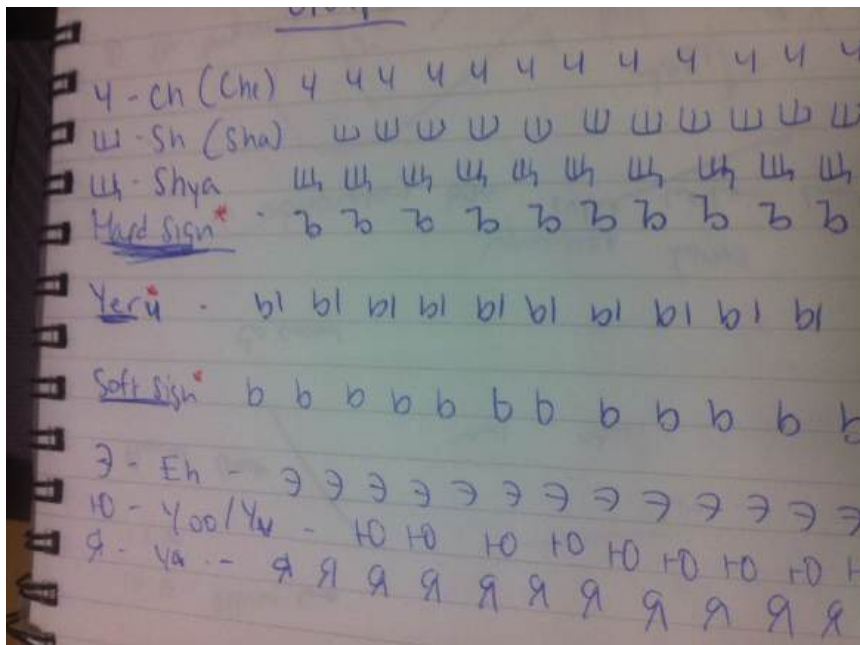 Ч - Ch (Che) ч ч ч ч ч ч ч ч ч ч ч ч
Ш - Sh (Sha) ш ш ш ш ш ш ш ш ш ш ш
Щ - Shya щ щ щ щ щ щ щ щ щ щ
Hard Sign* - ъ ъ ъ ъ ъ ъ ъ ъ ъ ъ
Yeru* - ы ы ы ы ы ы ы ы ы ы
Soft Sign* ь ь ь ь ь ь ь ь ь ь ь ь
Э - Eh - Э Э Э Э Э Э Э Э Э Э Э Э Э
Ю - Yoo/Yu - Ю Ю Ю Ю Ю Ю Ю Ю Ю
Я - Ya - Я Я Я Я Я Я Я Я Я Я Я